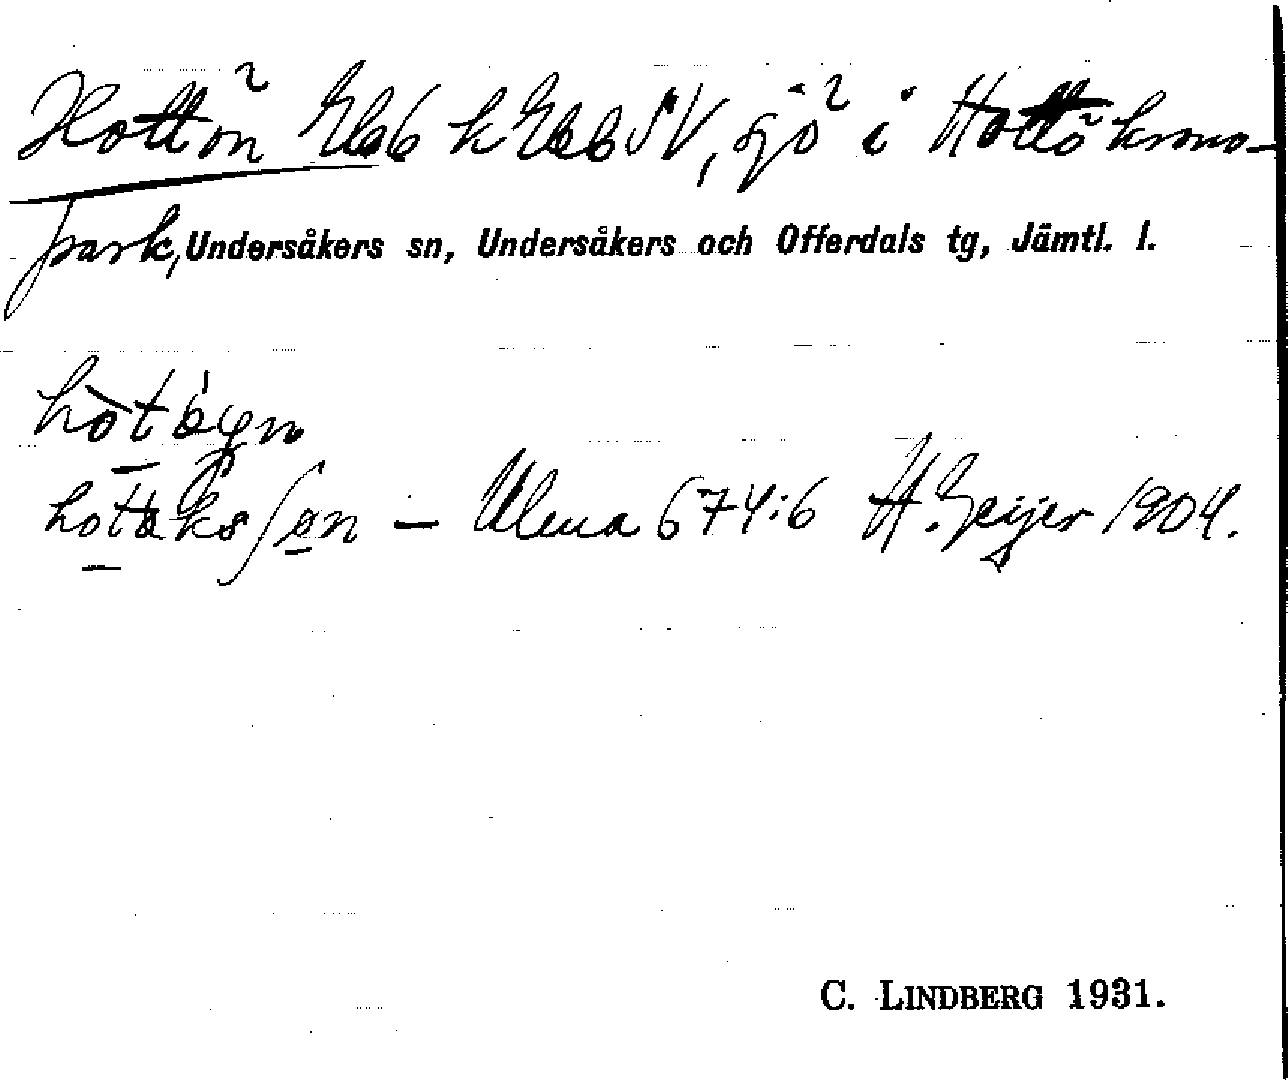 Hottön Ebb h Ebb SV, sjö i Hottö krono-
park, Undersåkers sn, Undersåkers och Offerdals tg, Jämtl. l.
hòtáɣn
hotaksʃøn — Ulma 674:6 H. Geijer 1904.
C. LINDBERG 1931.